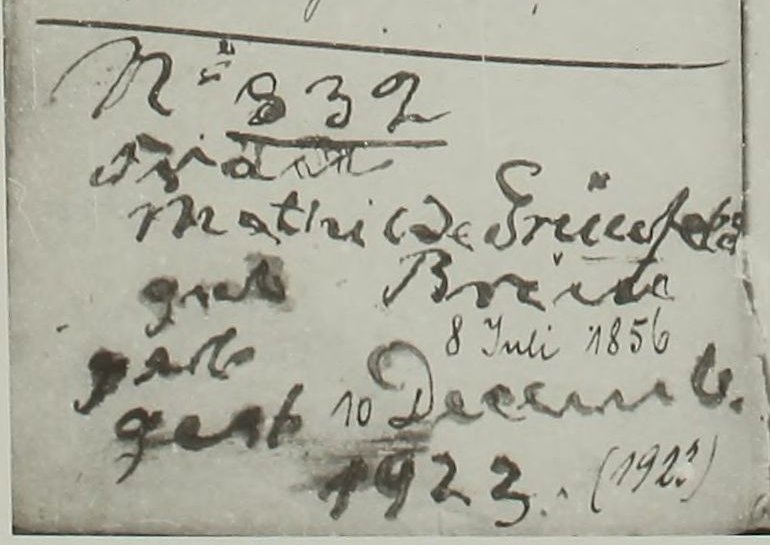 No 832
Frau
Mathilde Grünfeld
geb Breide
geb 8 Juli 1856
gest 10 Decemb.
1923. (1923)